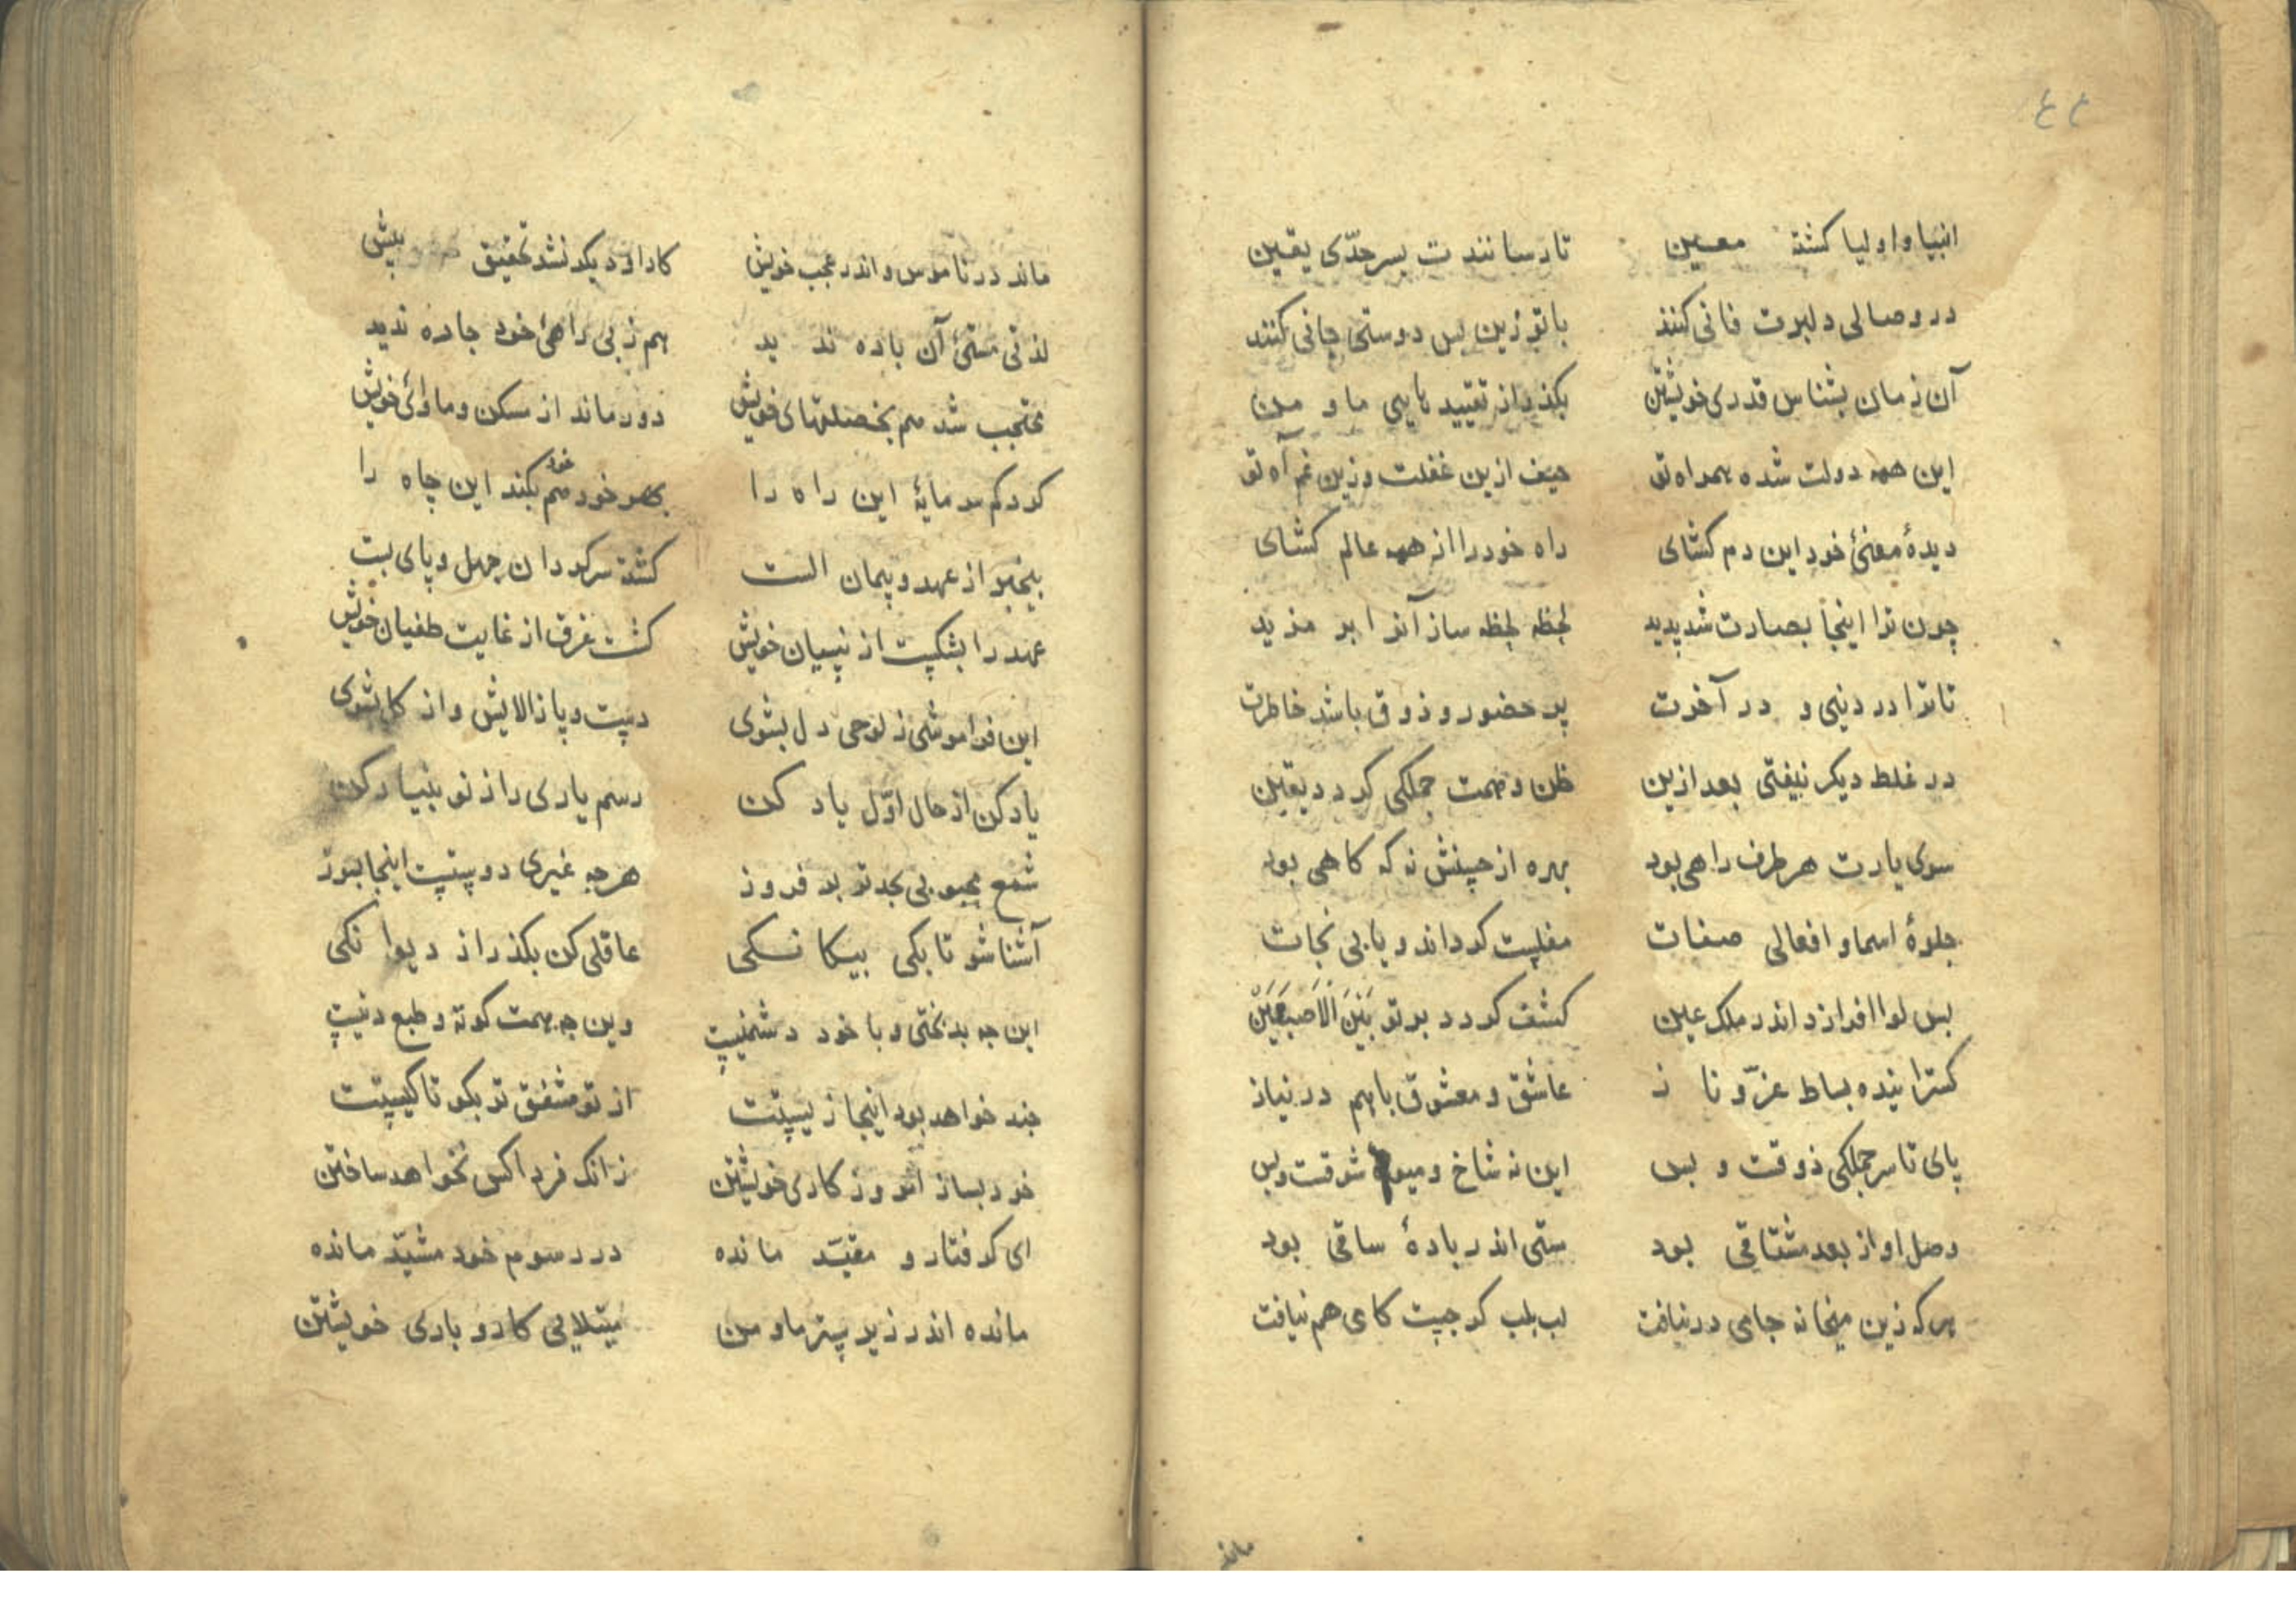 ۴۴
انبیا و اولیا کشته معین تا رسانندت بسر حدّی یقین
در وصالی دلبرت فانی کنند با تو زین پس دوستی جانی کنند
آن زمان بشناس قدری خویشتن بکذر از تقیید مایی ما و من
این همه دولت شده همراه تو حیف ازین غفلت وزین غم آه تو
دیدهٔ معنیٔ خود این دم کشای راه خود را از همه عالم کشای
چون ترا اینجا بصارت شد پدید لحظه لحظه ساز آنرا بر مزید
تا ترا در دنیی و در آخرت پر حضور و ذوق باشد خاطرت
در غلط دیکر نیفتی بعد ازین ظن و همت جملکی کردد یقین
سوی یارت هر طرف راهی بود بهره از حسنش نه که کاهی بود
جلوهٔ اسما و افعالی صفات مفلست کرداند و یابی نجات
بس لوا افرازد اندر ملک عین کشف کردد بر تو بَیْنَ الْاَصْبَعَیْن
کسترانیده بساط عزّ و نا ز عاشق و معشوق باهم در نیاز
پای تا سر جملکی ذوقت و بس این نه شاخ و میوهٔ شوقت و بس
وصل او از بعد مشتاقی بود مستی اندر بادهٔ ساقی بود
هر که زین میخانه جامی در نیافت لب بلب کر جست کامی هم نیافت
ماند
ماند در ناموس و اندر عجب خویش کار او دیکر نشد تحقیق بیش
لذتی مستیٔ آن باده ند ید هم ز بی راهیٔ خود جاده ندید
محتجب شد هم بخصلتهای خویش دور ماند از مسکن و ماوایٔ خویش
کرد کم سرمایهٔ این راه را بهر خود هم خود بکند این چاه را
بیخبر از عهد و پیمان الست کشته سرکردان جهل و پای بست
عهد را بشکست از نسیان خویش کشت غرق از غایت طغیان خویش
این فراموشی ز لوحی دل بشوی دست و پا زالایش و از کل بشوی
یاد کن از حال اوّل یاد کن رسم یاری را ز نو بنیاد کن
شمع محبوبی بجدتر بر فروز هرچه غیری دوستست اینجا بسوز
آشنا شو تا بکی بیکا نکی عاقلی کن بکذر از دیوا نکی
این چه بدبختی و با خود دشمنیست وین چه همت کوته و طبع دنیست
چند خواهد بود اینجا زیستت از تو مشفق تر بکو تا کیستت
خود بساز امروز کاری خویشتن زانک فردا کس نخواهد ساختن
ای کرفتار و مقیّد مانده در رسوم خود مشیّد مانده
مانده اندر زیر ستر ما و من مبتلایی کار و باری خویشتن